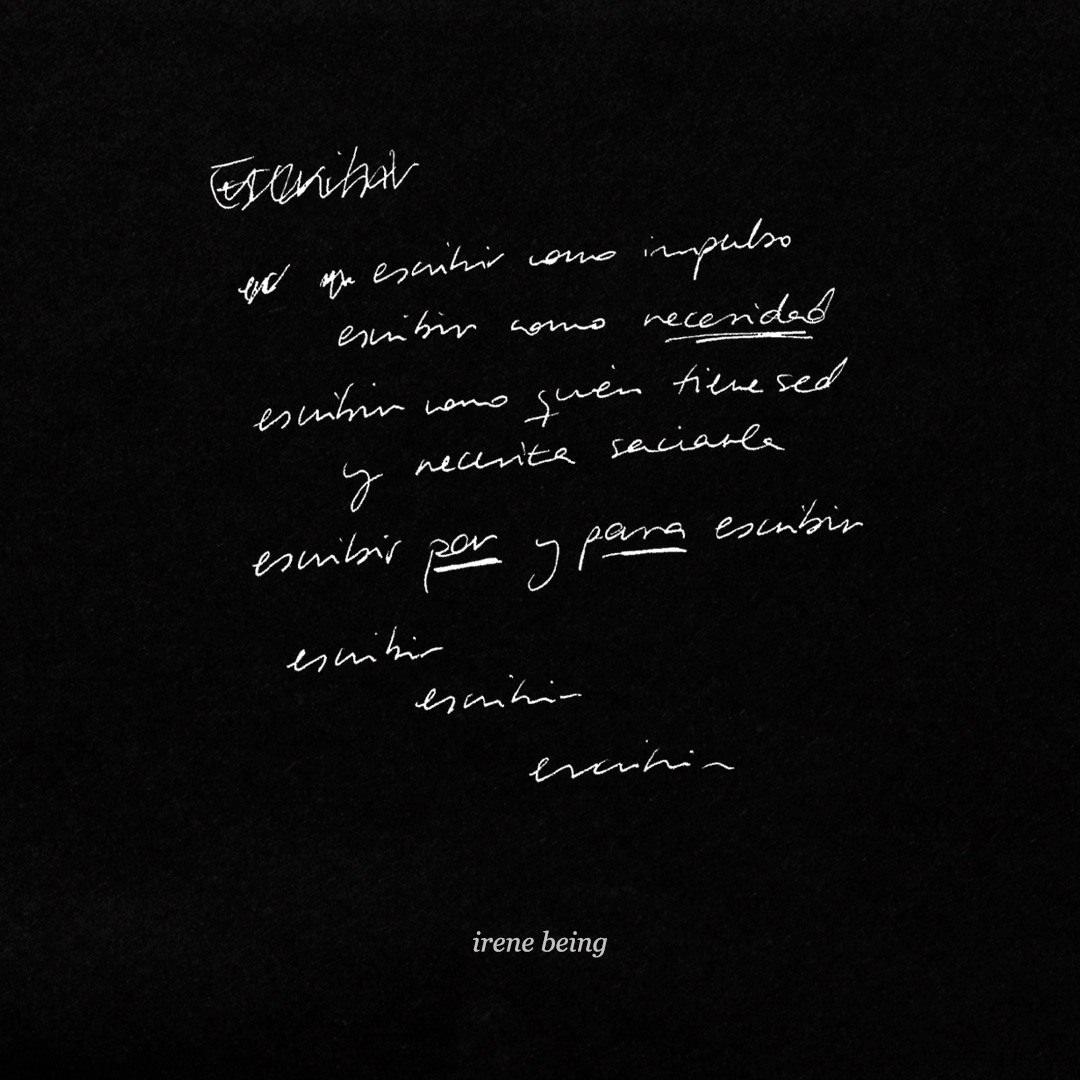 Escribir
escribir como impulso
escribir como necesidad
escribir como quién tiene sed
y necesita saciarla
escribir por y para escribir
escribir
escribir
escribir
irene being